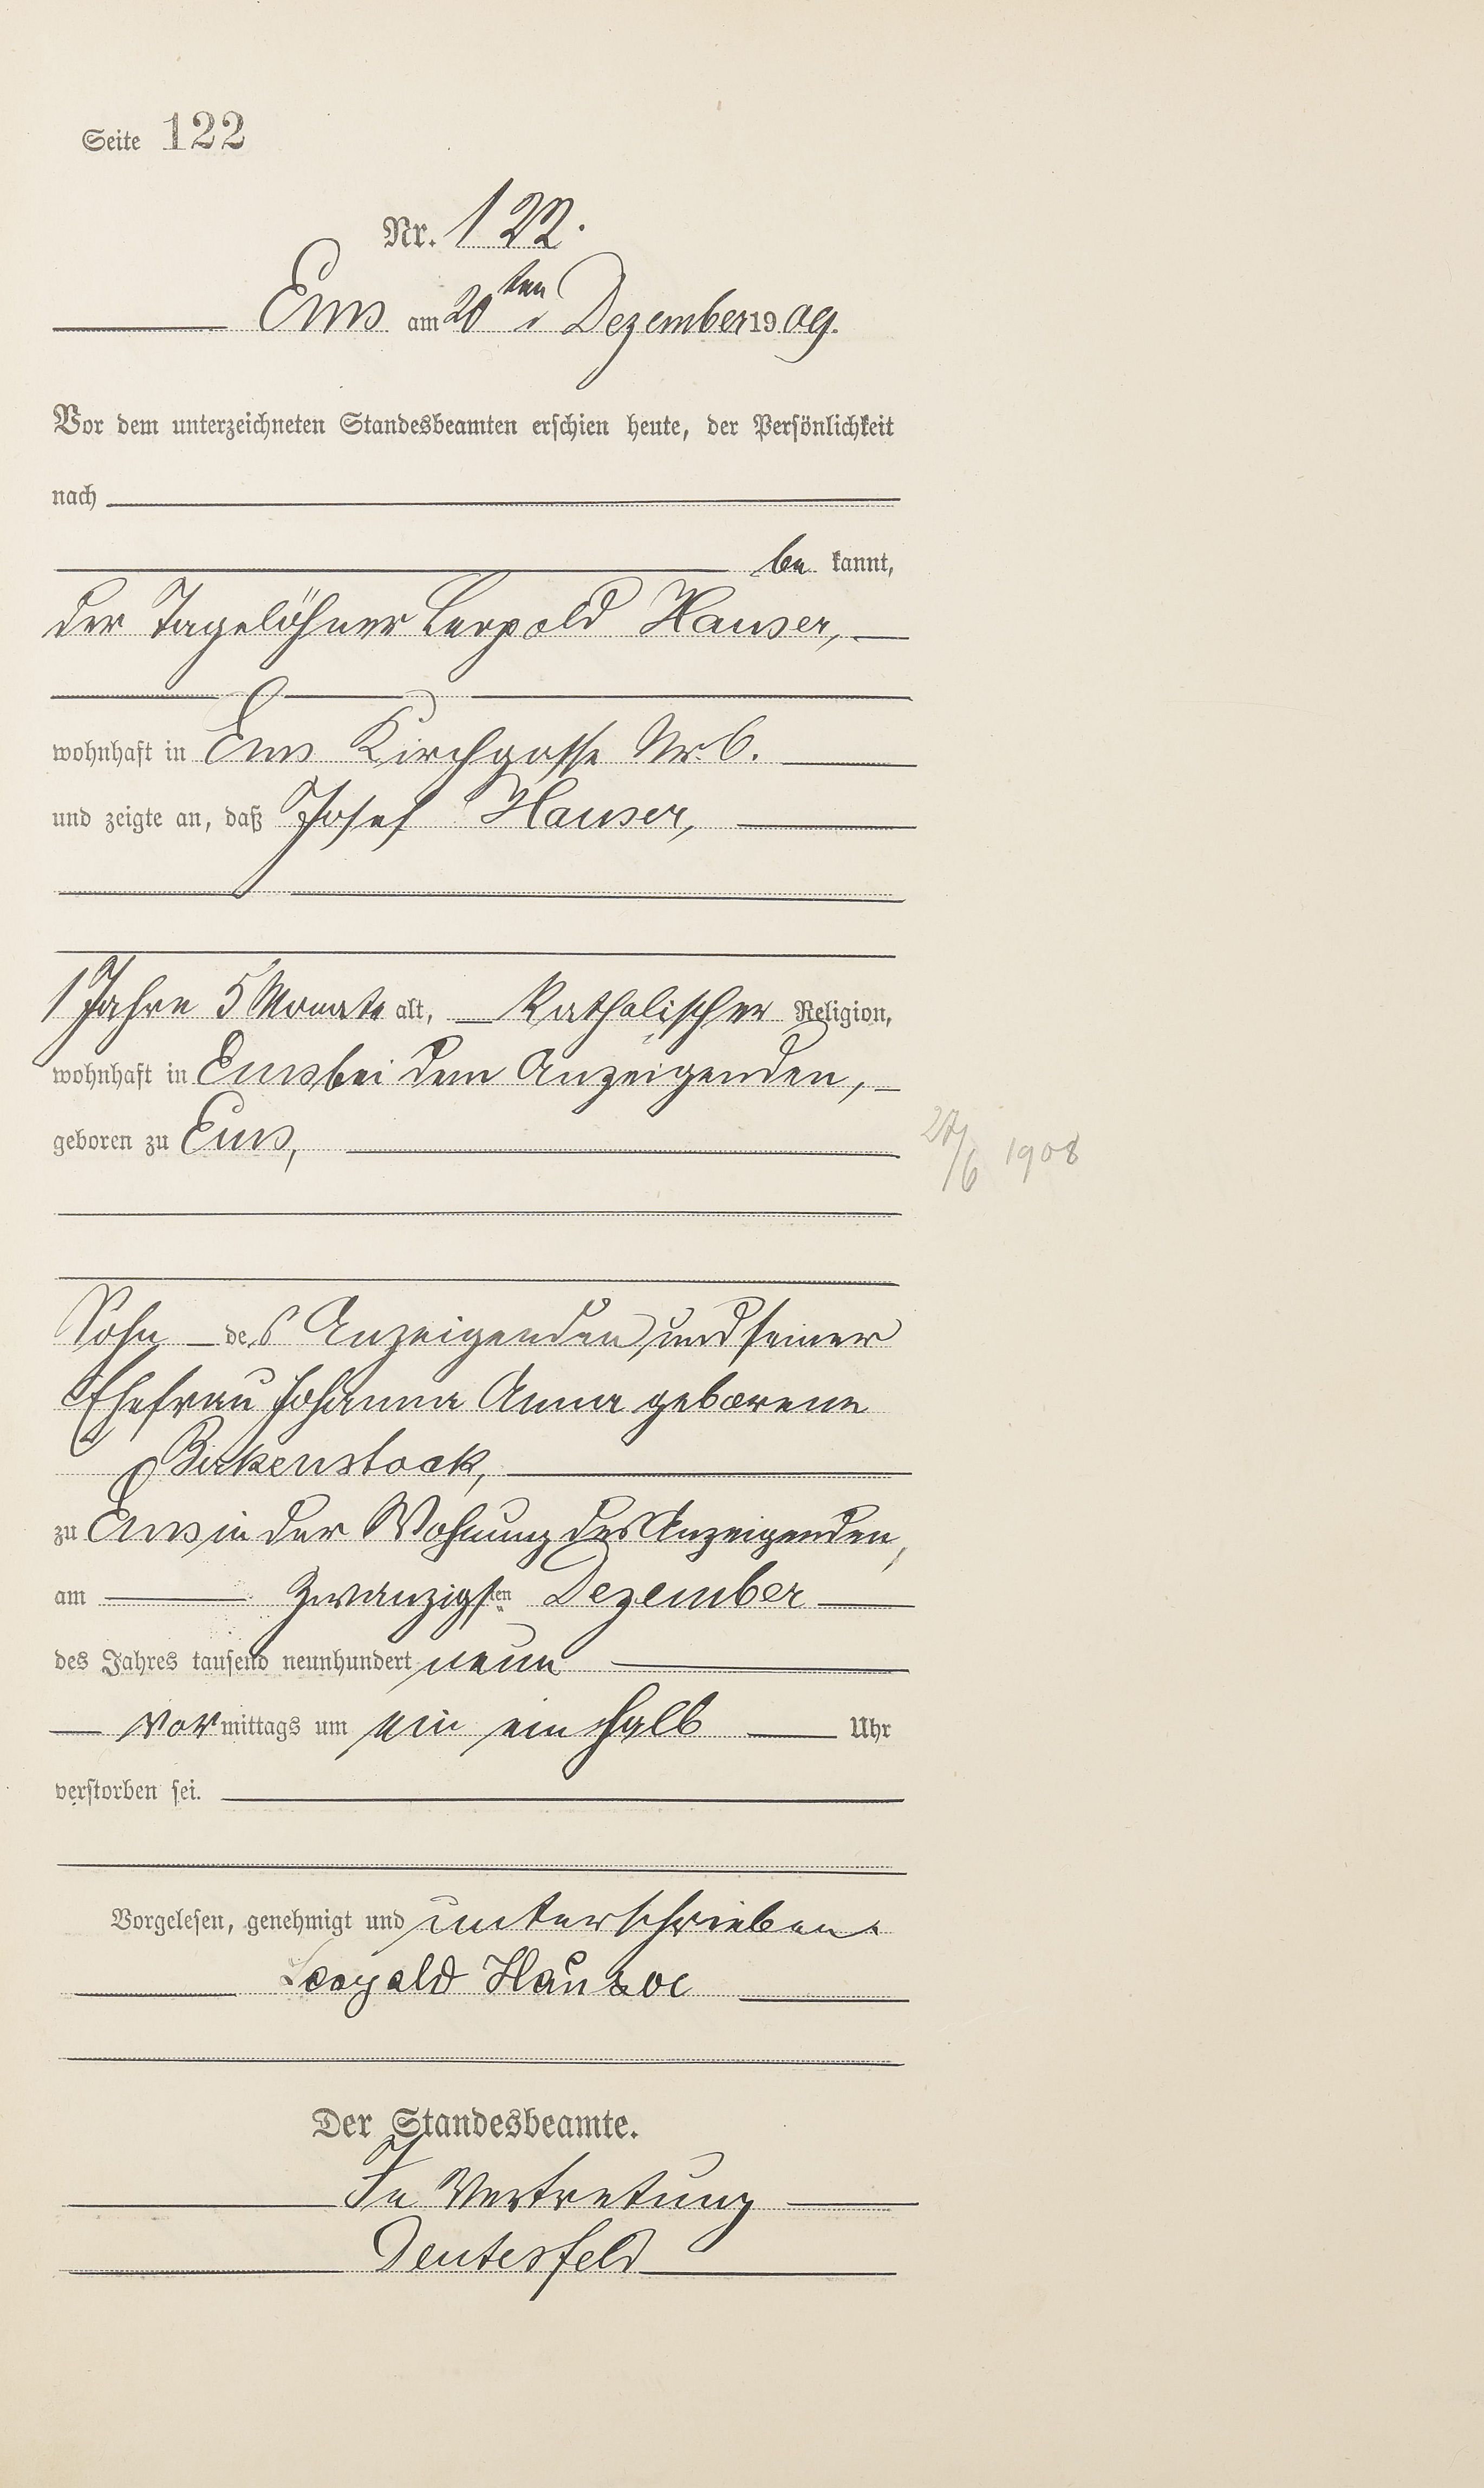 Seite 122
Nr. 122.
Ems am 20ten Dezember 1909.
Vor dem unterzeichneten Standesbeamten erschien heute, der Persönlichkeit
nach
be kannt,
der Tagelöhner Leopold Hauser,
wohnhaft in Ems Kirchgasse Nr. 6.
und zeigte an, daß Josef Hauser,
1 Jahre 5 Monate alt, katholischer Religion,
wohnhaft in Ems bei dem Anzeigenden,
geboren zu Ems,
27/6 1908
Sohn des Anzeigenden und seiner
Ehefrau Johanna Anna geborene
Birkenstock,
zu Ems in der Wohnung des Anzeigenden,
am zwanzigsten Dezember
des Jahres tausend neunhundert neun
vor mittags um ein einhalb Uhr
verstorben sei.
Vorgelesen, genehmigt und unterschrieben.
Leopold Hauser
Der Standesbeamte.
In Vertretung
Deutesfeld